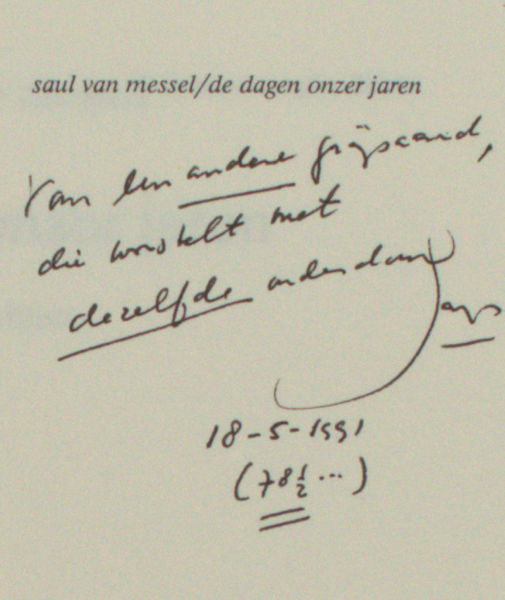 saul van messel/de dagen onzer jaren
Van een andere grijsaard,
die worstelt met
dezelfde ouderdom
18-5-1991
(78½...)